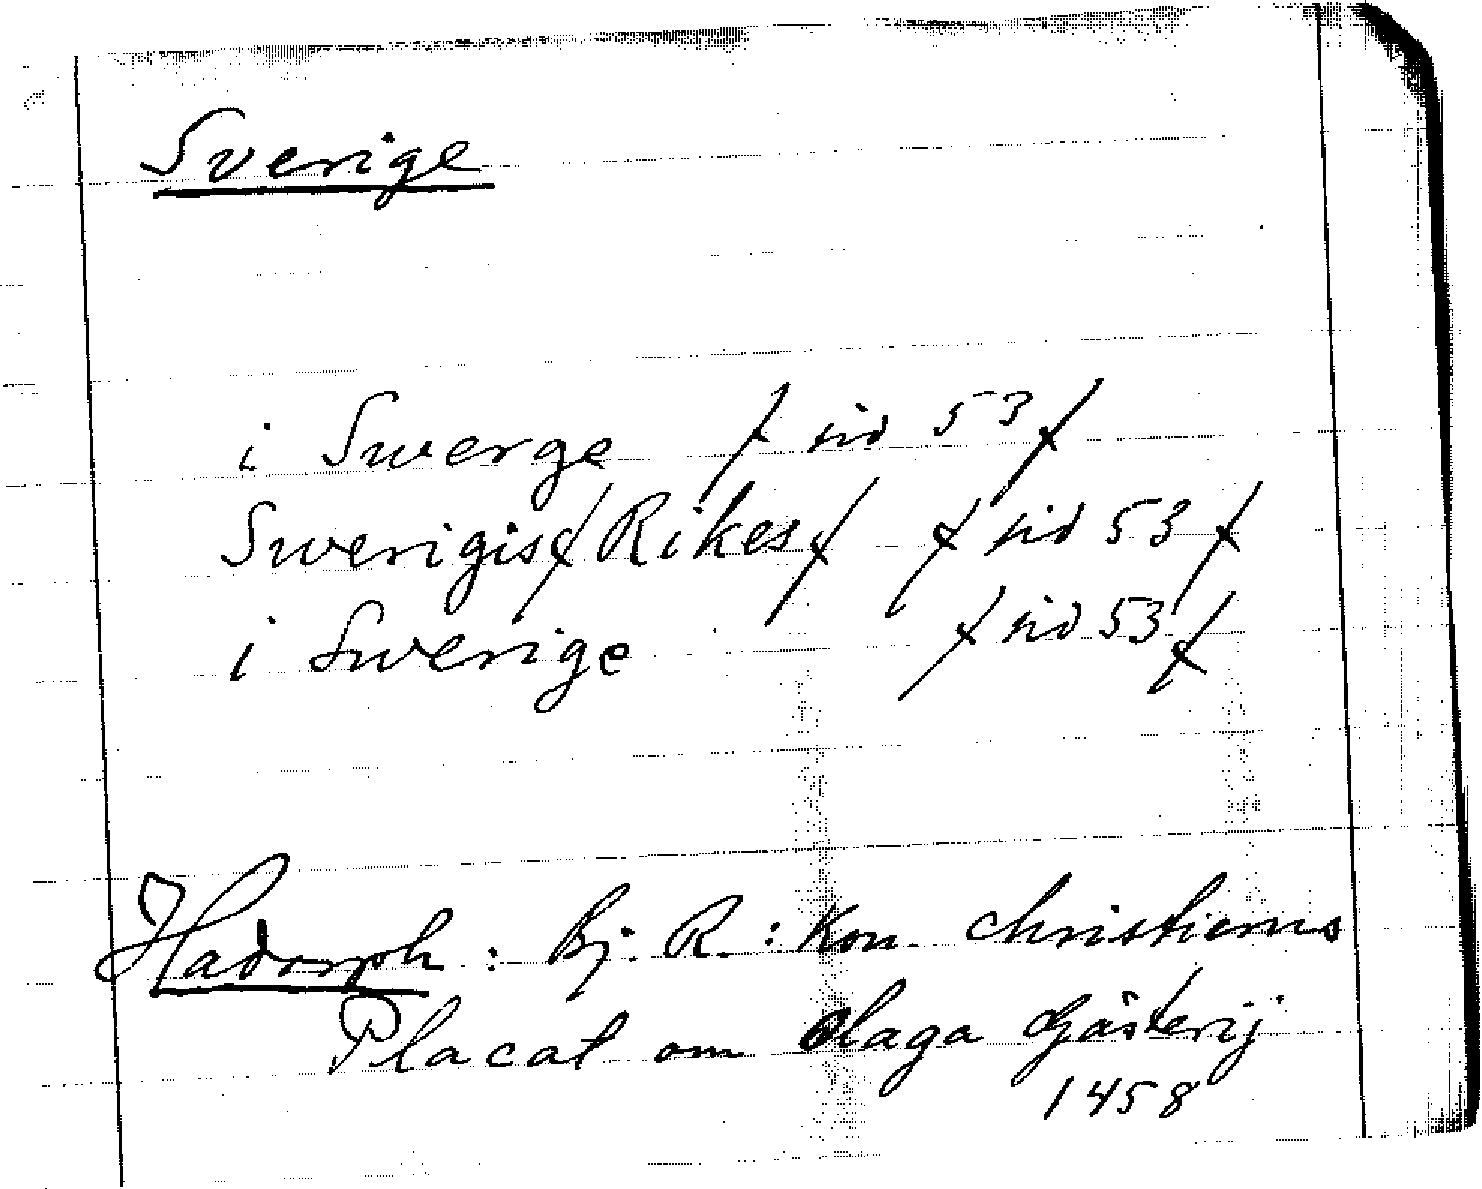 Sverige
i Swerge / sid 53 /
Swerigis / Rikes / / sid 53 /
i Swerige / sid 53 /
Hadorph : Bj. R. : Kon. Christierns
Placat om olaga Gästerij
1458